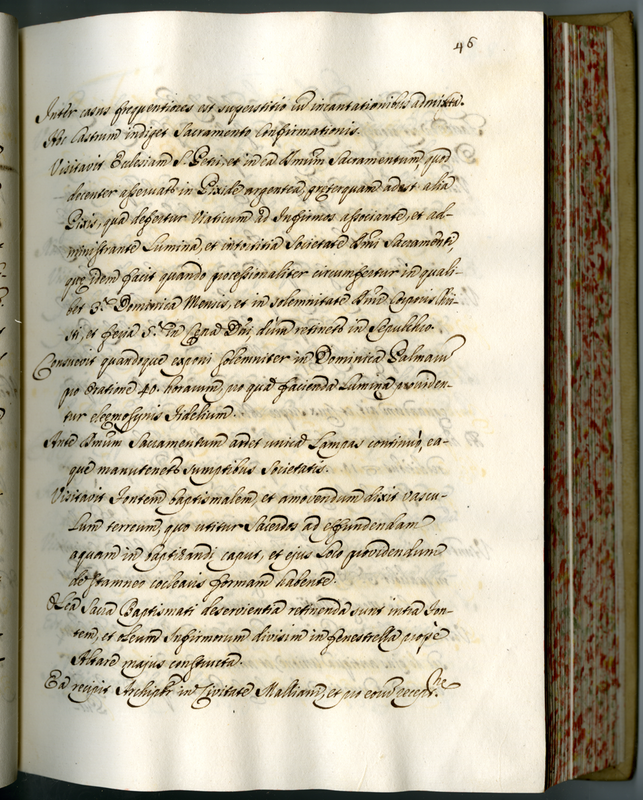 46
Inter casus frequentiores est superstitio cũ incantationibus admixta.
Hoc Castrum indiget Sacramento Confirmationis.
Visitavit Ecclesiam S. Petri, et in ea Bmũm Sacramentum, quod
decenter asservatr̃ in Pixide argentea, preterquam adest alia
Pixis, qua defertur Viaticum ad Infirmos associante, et ad-
ministrante Lumina, et intortitia Societate Bmĩ Sacramenti,
que idem facit quando processionaliter circumfertur in quali-
bet 3.ª Dominica Mensis, et in solemnitate Bmĩ Corporis Chri-
sti, et feria 5.ª in Cena Dñi dum retinetr̃ in Sepulchro.
Consuevit quandoque exponi solemniter in Dominica Palmarũ
pro oratione 40. horarum, pro qua facienda Lumina providen-
tur eleemosynis Fidelium.
Ante Bmũm Sacramentum ardet unica Lampas continuò, ea-
que manutenetr̃ sumptibus Societatis.
Visitavit Fontem baptismalem, et amovendum dixit vascu-
lum terreum, quo utitur Sacerdos ad effundendam
aquam in baptizandi caput, et ejus loco providendum
de stamneo coclearis formam habente.
Olea Sacra Baptismati deservientia retinenda sunt intra Fon-
tem, et oleum Infirmorum divisim in fenestrella propè
Altare majus constructa.
Ea recipit Archipr̃ in Civitate Mallianĩ, et pro eorũ recept.ne